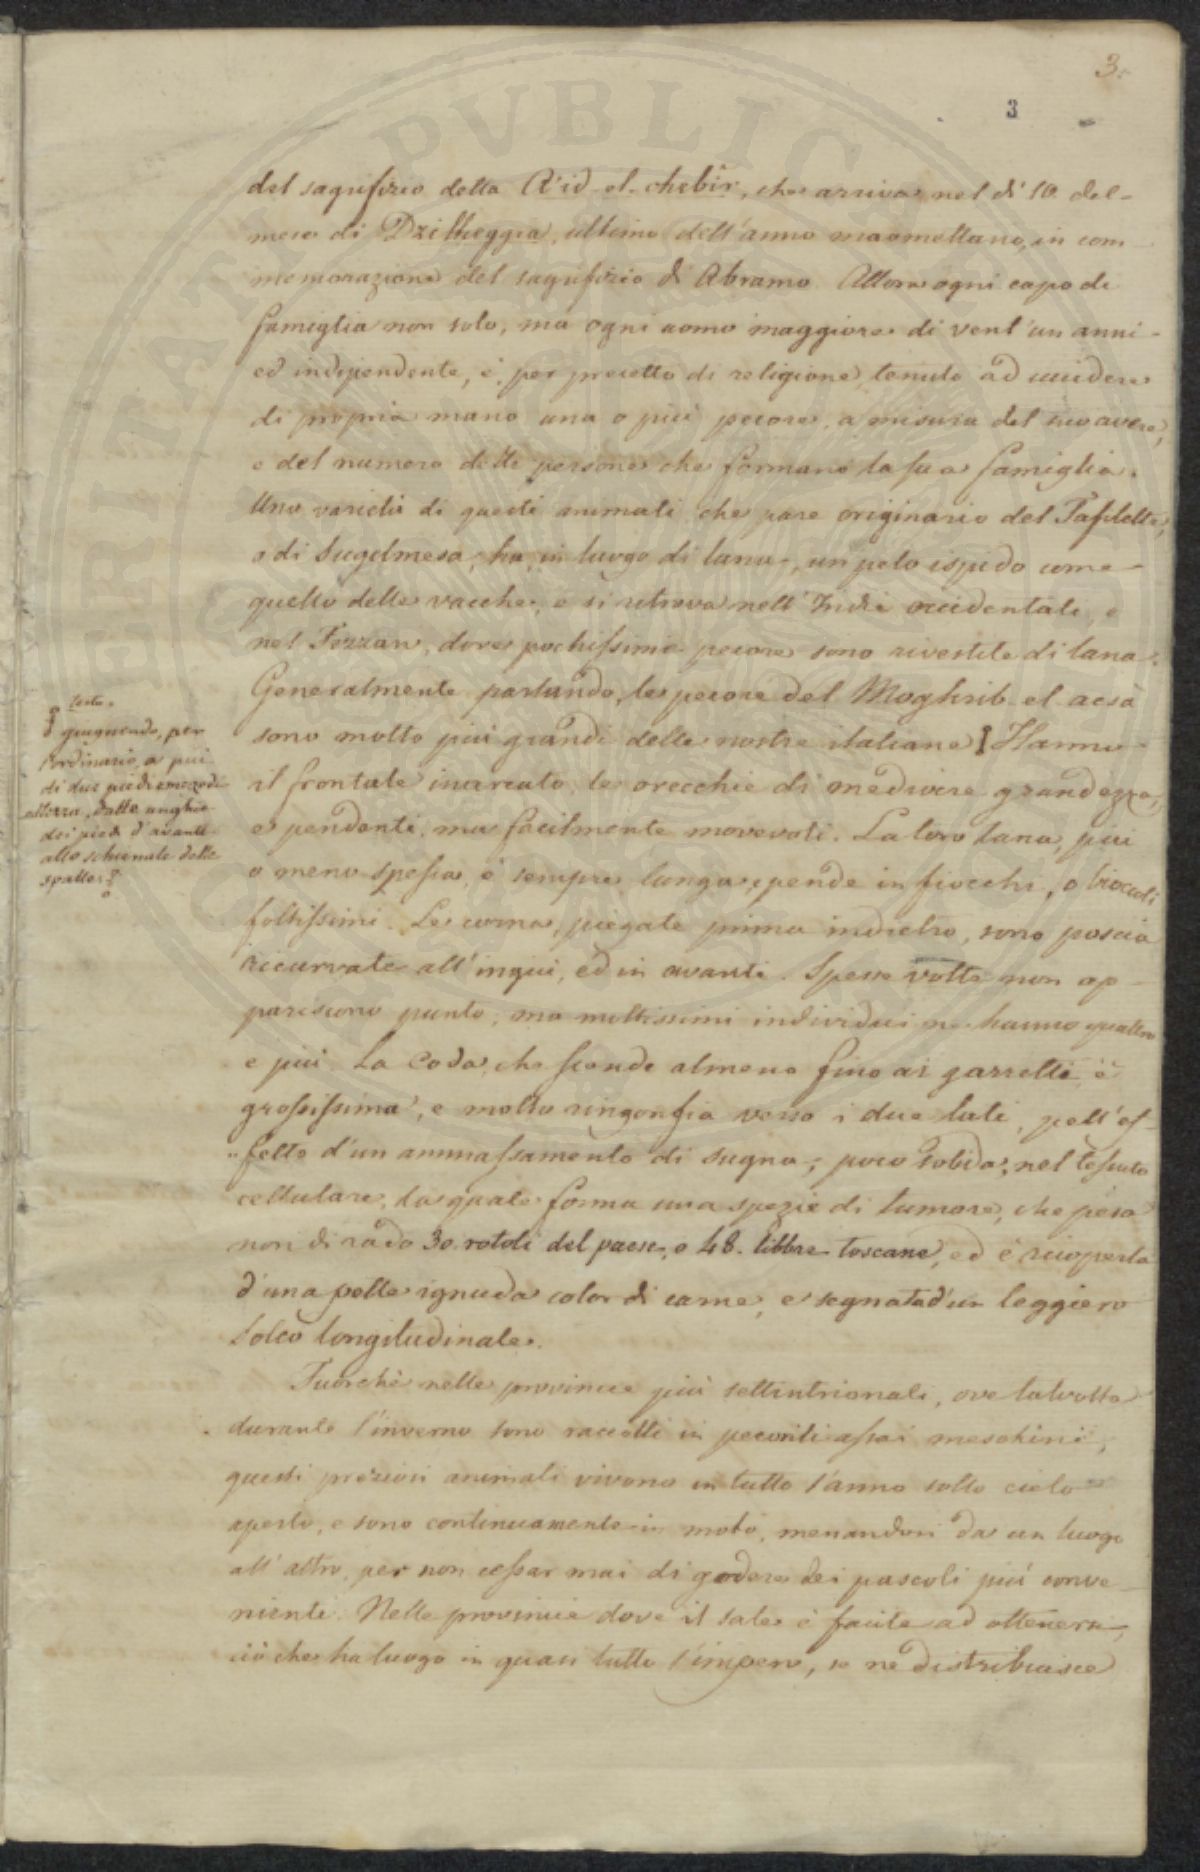 3.
3
del sagrifizio della A'id-el-chebir, che arriva nel dì 10 del
mese di Dzilheggia, ultimo dell'anno maomettano, in com-
memorazione del sagrifizio di Abramo. Allora ogni capo di
famiglia non solo, ma ogni uomo maggiore di vent'un anni
ed indipendente, è, per precetto di religione, tenuto ad uccidere
di propria mano una o più pecore, a misura del suo avere,
e del numero delle persone che formano la sua famiglia.
Una varietà di questi animali, che pare originaria del Tafilelte,
o di Sugelmesa, ha, in luogo di lana, un pelo ispido come
quello delle vacche, e si ritrova nell'Indie occidentali, e
nel Fezzan, dove pochissime pecore sono rivestite di lana.
Generalmente parlando, le pecore del Moghrib-el-acsà
sono molto più grandi delle nostre italiane. Hanno
il frontale inarcato, le orecchie di mediocre grandezza,
e pendenti, ma facilmente movevoli. La loro lana, più
o meno spessa, è sempre lunga, e pende in fiocchi, o bioccoli
foltissimi. Le corna, piegate prima indietro, sono poscia
ricurvate all'ingiù, ed in avanti. Spesse volte non ap-
pariscono punto, ma moltissimi individui ne hanno quattro
e più. La coda, che scende almeno fino ai garretti, è
grossissima, e molto ringonfia verso i due lati, pell'ef-
"fetto d'un ammassamento di sugna, poco solida, nel tessuto
cellulare, la quale forma una spezie di tumore, che pesa
non di rado 30. rotoli del paese, o 48. libbre toscane, ed è ricoperta
d'una pelle ignuda color di carne, e segnata d'un leggiero
solco longitudinale.
Fuorchè nelle provincie più settentrionali, ove talvolta
durante l'inverno sono raccolti in pecorili assai meschini,
questi preziosi animali vivono in tutto l'anno sotto cielo
aperto, e sono continuamente in moto, menandosi da un luogo
all'altro, per non cessar mai di godere dei pascoli più conve-
nienti. Nelle provincie dove il sale è facile ad ottenersi,
ciò che ha luogo in quasi tutto l'impero, se ne distribuisce
testo.
giugnendo, per
l'ordinario, a più
di due piedi e mezzo di
altezza, dalle unghie
dei piedi d'avanti
allo schienale delle
spalle.
PVBLICAE